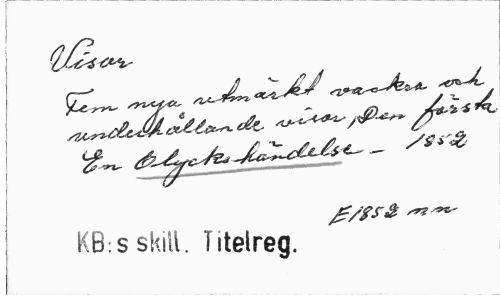 Visor
Fem nya utmärkt vackra och
underhållande visor, Den första
En Olyckshändelse – 1852
E1852 nn
KB:s skill. Titelreg.